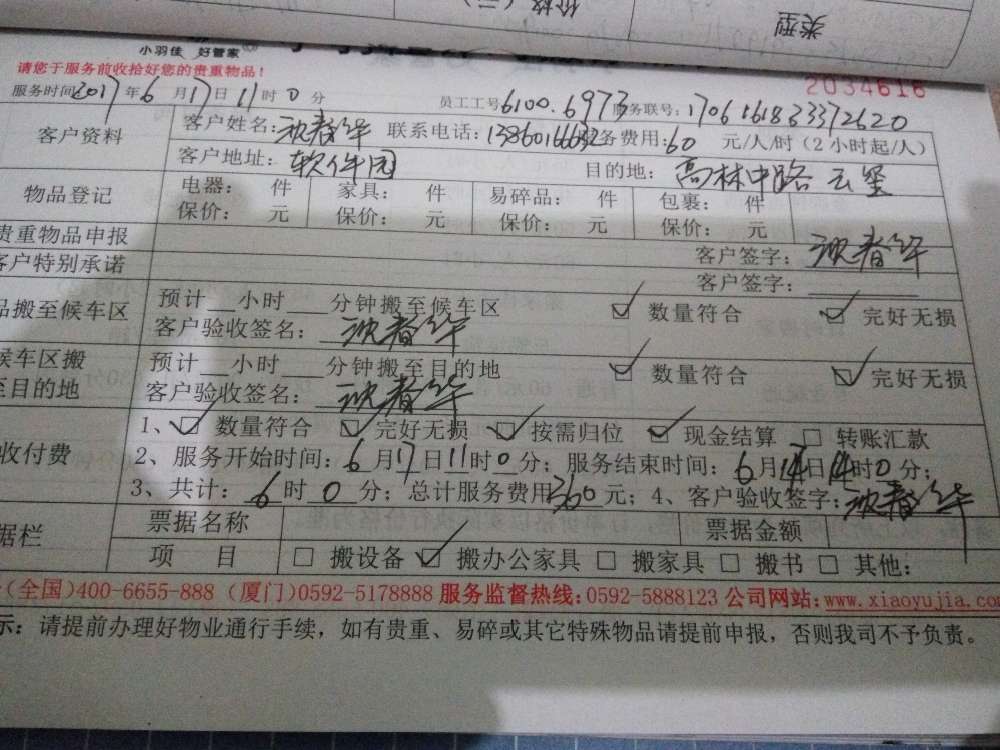 类型
价格(元)
小羽佳 好管家®
请您于服务前收拾好您的贵重物品!
2034616
服务时间2017年6月17日11时0分 员工工号6100.6973 服务联号:1706161833372620
客户资料 客户姓名: 联系电话: 务费用:60元/人/时(2小时起/人)
客户地址:软件园 目的地:高林中路
物品登记 电器: 件 家具: 件 易碎品: 件 包裹: 件
保价: 元 保价: 元 保价: 元 保价: 元
贵重物品申报 客户签字:
客户特别承诺 客户签字:
品搬至候车区 预计__小时___分钟搬至候车区 ☑ 数量符合 ☑ 完好无损
客户验收签名:
候车区搬至目的地 预计__小时___分钟搬至目的地 ☑ 数量符合 ☑ 完好无损
客户验收签名:
收付费 1、☑ 数量符合 ☑ 完好无损 ☑ 按需归位 ☑ 现金结算 □ 转账汇款
2、服务开始时间:6月17日11时0分;服务结束时间:6月14日14时0分;
3、共计:6时0分;总计服务费用360元;4、客户验收签字:
据栏 票据名称 票据金额
项 目 □ 搬设备 ☑ 搬办公家具 □ 搬家具 □ 搬书 □ 其他:
(全国)400-6655-888(厦门)0592-5178888 服务监督热线:0592-5888123 公司网站:www.xiaoyujia.co
示:请提前办理好物业通行手续,如有贵重、易碎或其它特殊物品请提前申报,否则我司不予负责。